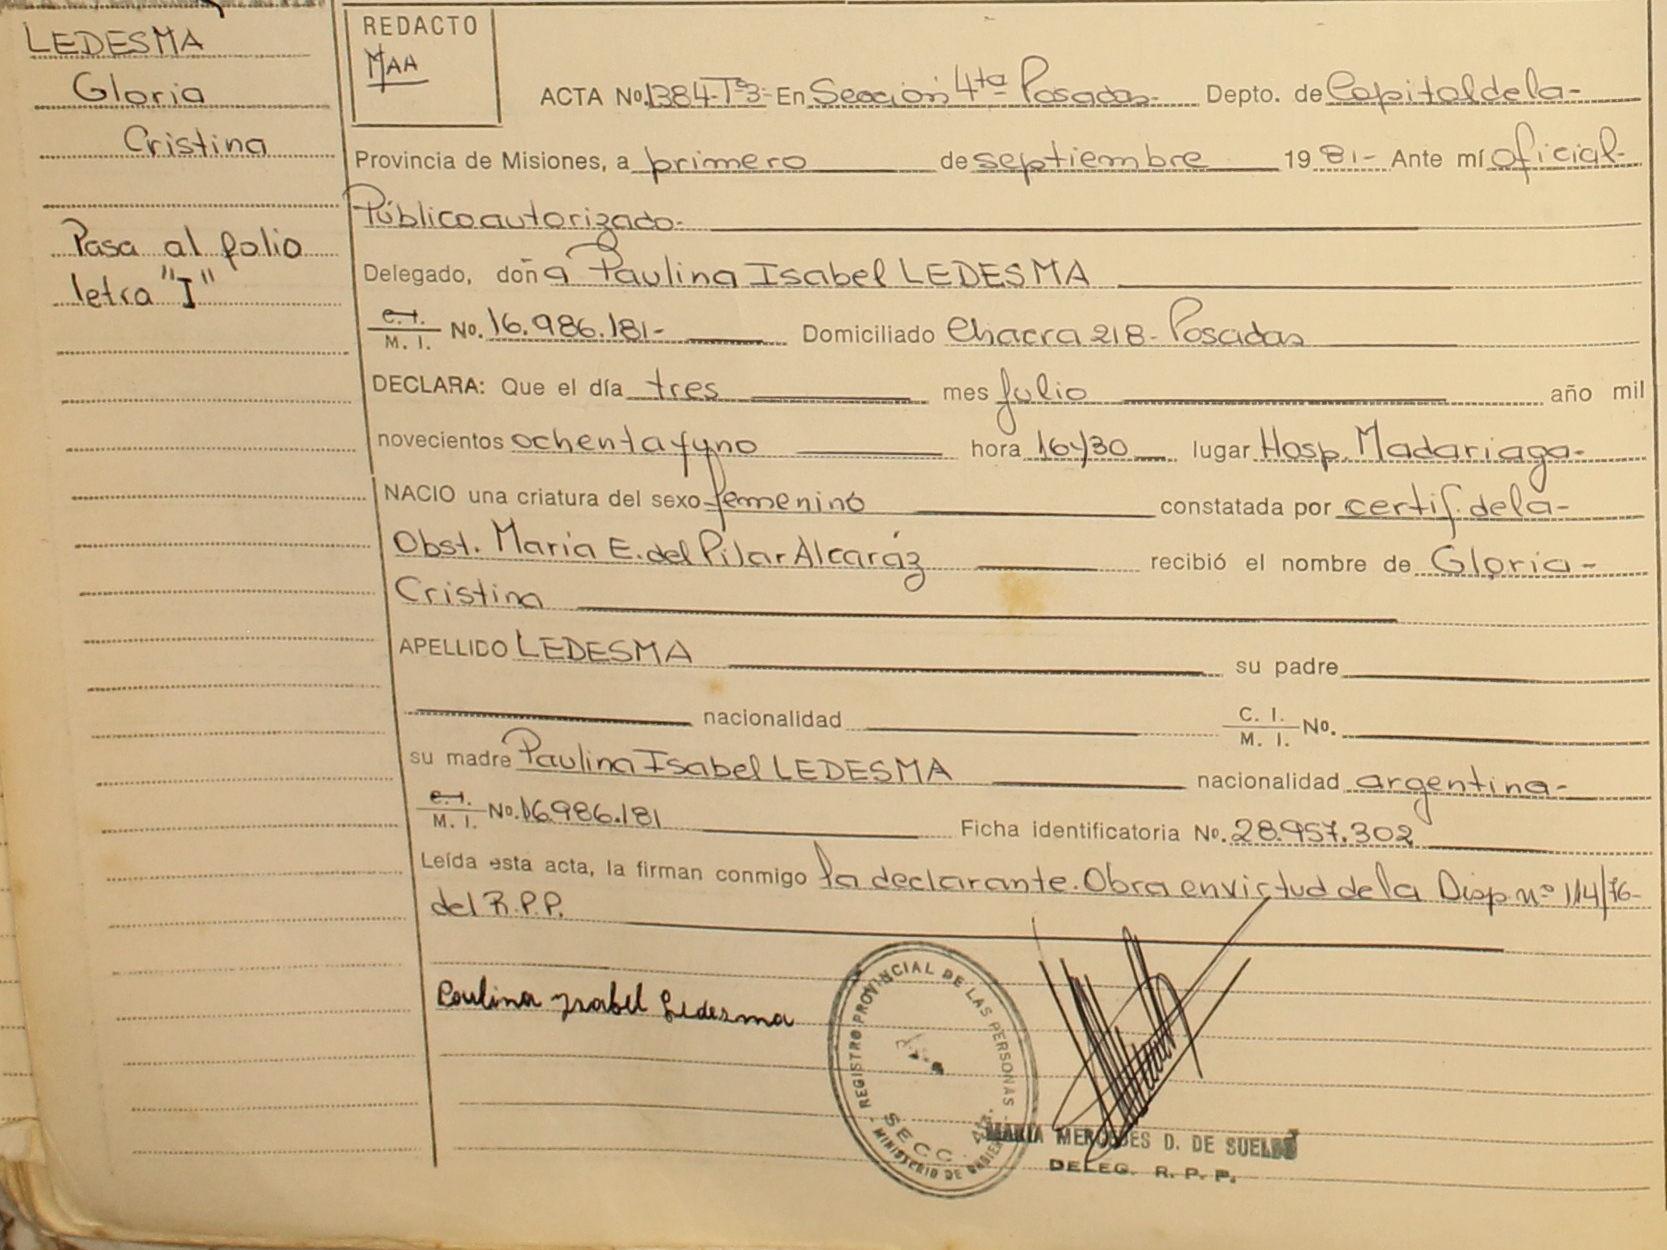 LEDESMA
Gloria
Cristina
Pasa al folio
letra "I"
REDACTO
MAA
ACTA No. 1384-Tº3- En Sección 4ta Posadas- Depto. de Capital de la-
Provincia de Misiones, a primero de septiembre 1981- Ante mí oficial
Público autorizado-
Delegado, doña Paulina Isabel LEDESMA
C. I. / M. I. No. 16.986.181- Domiciliado Chacra 218- Posadas
DECLARA: Que el día tres mes julio año mil
novecientos ochenta y uno hora 16y30 lugar Hosp. Madariaga-
NACIO una criatura del sexo femenino constatada por certif. de la-
Obst. María E. del Pilar Alcaráz recibió el nombre de Gloria-
Cristina
APELLIDO LEDESMA su padre
nacionalidad C. I. / M. I. No.
su madre Paulina Isabel LEDESMA nacionalidad argentina-
C. I. / M. I. No. 16.986.181 Ficha identificatoria No. 28.957.302
Leída esta acta, la firman conmigo la declarante. Obra en virtud de la Disp. nº 114/76-
del R.P.P.
Paulina Isabel Ledesma
REGISTRO PROVINCIAL DE LAS PERSONAS
SECC. 4ta.
MINISTERIO DE GOBIERNO
MARIA MERCEDES D. DE SUELDO
DELEG. R. P. P.